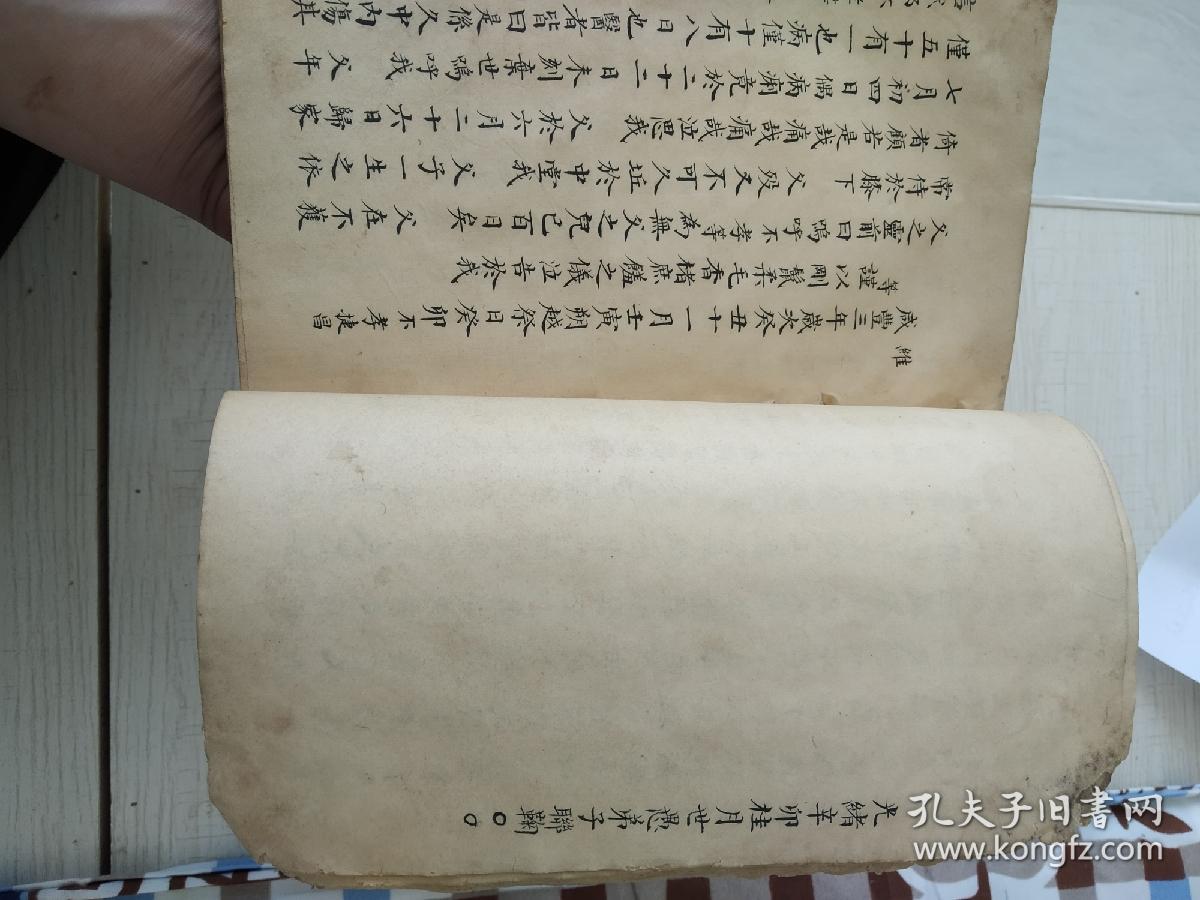 光緒辛卯桂月世愚弟子聯鞠〇〇
維
咸豐三年歲次癸丑十一月壬寅朔越祭日癸卯不孝捷昌
等謹以剛鬣柔毛香楮庶饈之儀泣告於我
父之靈前曰嗚呼不孝等為無父之兒已百日矣 父在不獲
常侍於膝下 父歿又不可久近於中堂我 父子一生之依
倚者顧若是哉痛哉痛哉泣思我 父於六月二十六日歸家
七月初四日偶病痢竟於二十二日未刻棄世嗚呼我 父年
僅五十有一也病僅十有八日也醫者皆曰是係久中內傷其
孔夫子旧书网
www.kongfz.com